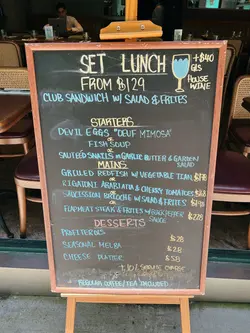 SET LUNCH
+$40
GLS
HOUSE
WINE
FROM $129
CLUB SANDWICH W/ SALAD & FRITES
STARTERS
DEVIL EGGS "OEUF MIMOSA"
OR
FISH SOUP
OR
SAUTEED SNAILS IN GARLIC BUTTER & GARDEN
SALAD
MAINS
GRILLED REDFISH W/ VEGETABLE TIAN
OR
RIGATONI ARABIATA & CHERRY TOMATOES
OR
SAUCISSION BRIOCHE W/ SALAD & FRITES
OR
FLAPMEAT STEAK & FRITES W/ BLACK PEPPER
SAUCE
DESSERTS
PROFITEROLES
SEASONAL MELBA
CHEESE PLATTER
+10% SERVICE CHARGE
REGULAR COFFEE/TEA INCLUDED